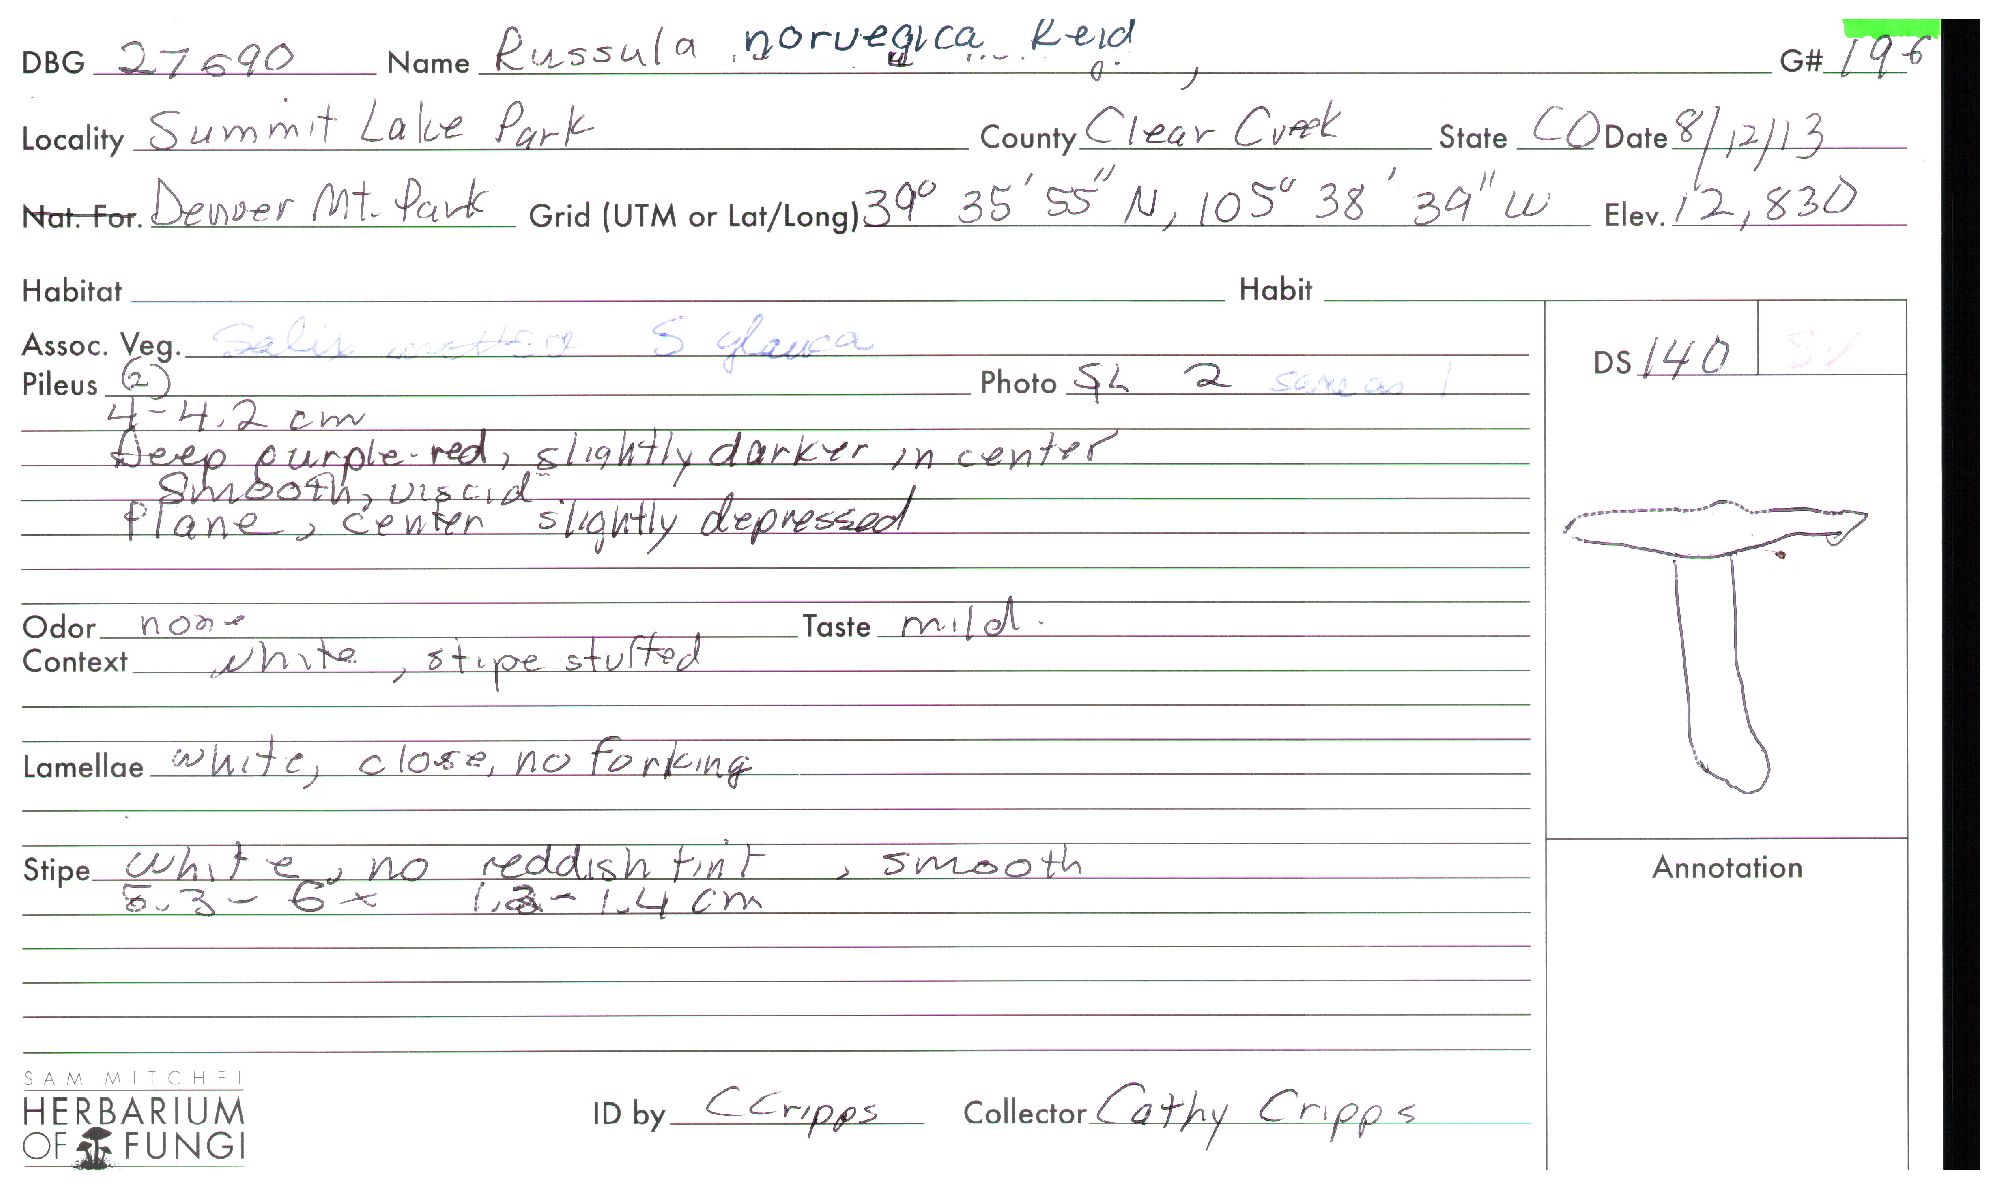 DBG 27690 Name Russula norvegica Reid, G# 196
Locality Summit Lake Park County Clear Creek State CO Date 8/12/13
Nat. For. Denver Mt. Park Grid (UTM or Lat/Long) 39° 35' 55" N, 105° 38' 39" W Elev. 12,830
Habitat Habit
Assoc. Veg. Salix S glauca
Pileus (2) Photo SL 2 same as 1
DS 140
4-4.2 cm
Deep purple-red, slightly darker in center
Smooth, viscid
Plane, center slightly depressed
Odor none Taste mild.
Context white, stipe stuffed
Lamellae white, close, no forking
Stipe white, no reddish tint, smooth
5.3-6 x 1.3-1.4 cm
Annotation
SAM MITCHEL
HERBARIUM
OF FUNGI
ID by C Cripps Collector Cathy Cripps